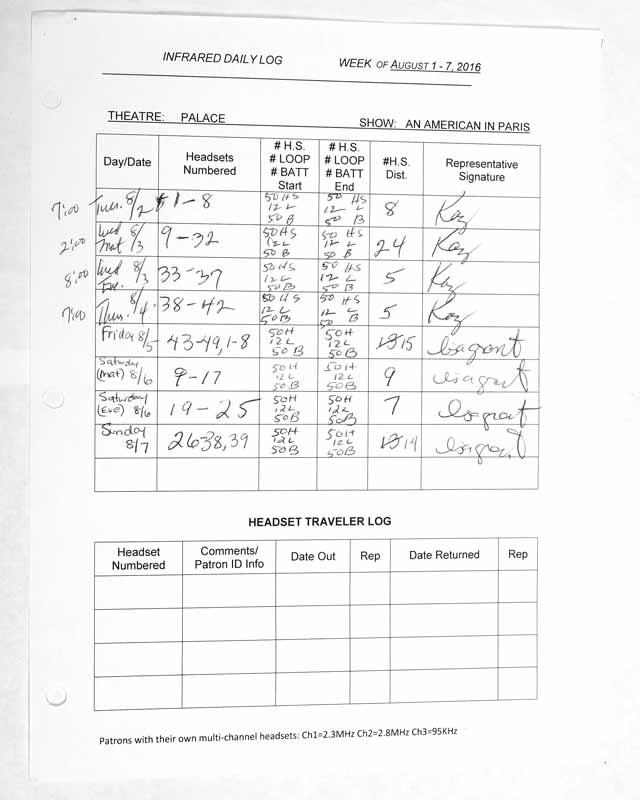 INFRARED DAILY LOG WEEK OF AUGUST 1 - 7, 2016
THEATRE: PALACE SHOW: AN AMERICAN IN PARIS
Day/Date Headsets Numbered # H.S. # LOOP # BATT Start # H.S. # LOOP # BATT End #H.S. Dist. Representative Signature
7:00 Tues. 8/2 1-8 50 HS 12 L 50 B 50 HS 12 L 50 B 8 Kay
2:00 Wed mat 8/3 9-32 50 HS 12 L 50 B 50 HS 12 L 50 B 24 Kay
8:00 Wed Eve. 8/3 33-37 50 HS 12 L 50 B 50 HS 12 L 50 B 5 Kay
7:00 Thur. 8/4 38-42 50 HS 12 L 50 B 50 HS 12 L 50 B 5 Kay
Friday 8/5 43-49, 1-8 50H 12L 50B 50H 12L 50B 15
Saturday (mat) 8/6 9-17 50H 12L 50B 50H 12L 50B 9
Saturday (Eve) 8/6 19-25 50H 12L 50B 50H 12L 50B 7
Sunday 8/7 2638,39 50H 12L 50B 50H 12L 50B 14
HEADSET TRAVELER LOG
Headset Numbered Comments/ Patron ID Info Date Out Rep Date Returned Rep
Patrons with their own multi-channel headsets: Ch1=2.3MHz Ch2=2.8MHz Ch3=95KHz